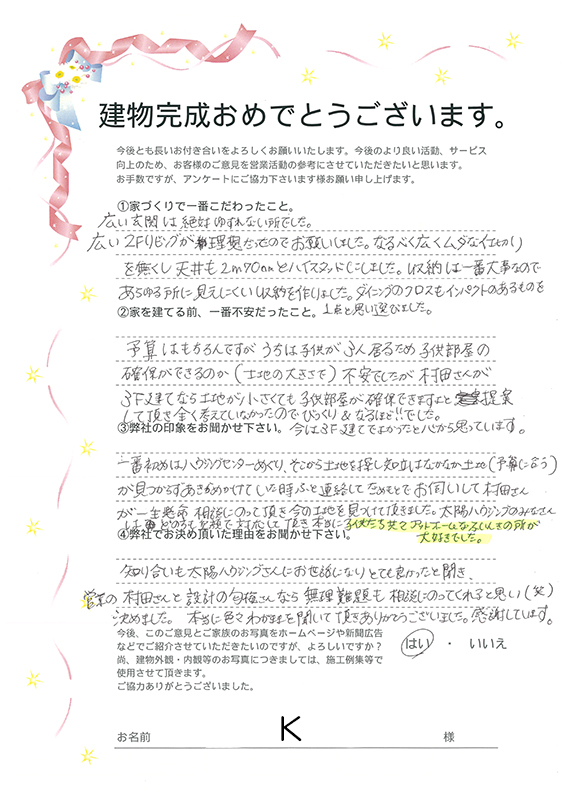 建物完成おめでとうございます。
今後とも長いお付き合いをよろしくお願いいたします。今後のより良い活動、サービス
向上のため、お客様のご意見を営業活動の参考にさせていただきたいと思います。
お手数ですが、アンケートにご協力下さいます様お願い申し上げます。
①家づくりで一番こだわったこと。
広い玄関は絶対ゆずれない所でした。
広い2Fリビングが理想だったのでお願いしました。なるべく広くムダな仕切り
を無くし天井も2m70cmとハイスタッドにしました。収納は一番大事なので
あらゆる所に見えにくい収納を作りました。ダイニングのクロスもインパクトのあるものを
②家を建てる前、一番不安だったこと。1点と思い選びました。
予算はもちろんですがうちは子供が3人居るため子供部屋の
確保ができるのか(土地の大きさで)不安でしたが村田さんが
3F建てなら土地が小さくても子供部屋が確保できますよと提案
して頂き全く考えていなかったのでびっくり&なるほど!!でした。
③弊社の印象をお聞かせ下さい。今は3F建てでよかったと心から思っています。
一番初めはハウジングセンターめぐり、そこから土地を探し始めなかなか土地(予算に合う)
が見つからずあきらめかけていた時ふと連絡してためもとでお伺いして村田さん
が一生懸命相談にのって頂き今の土地を見つけて頂きました。太陽ハウジングのみなさん
は 笑顔で対応して頂き本当に子供たち共々アットホームなふんいきの所が
④弊社でお決め頂いた理由をお聞かせ下さい。大好きでした。
知り合いも太陽ハウジングさんにお世話になりとても良かったと聞き、
営業の村田さんと設計の さんなら無理難題も相談にのってくれると思い(笑)
決めました。本当に色々わがままを聞いて頂きありがとうございました。感謝しています。
今後、このご意見とご家族のお写真をホームページや新聞広告
などでご紹介させていただきたいのですが、よろしいですか?
はい ・ いいえ
尚、建物外観・内観等のお写真につきましては、施工例集等で
使用させて頂きます。
ご協力ありがとうございました。
お名前 K 様